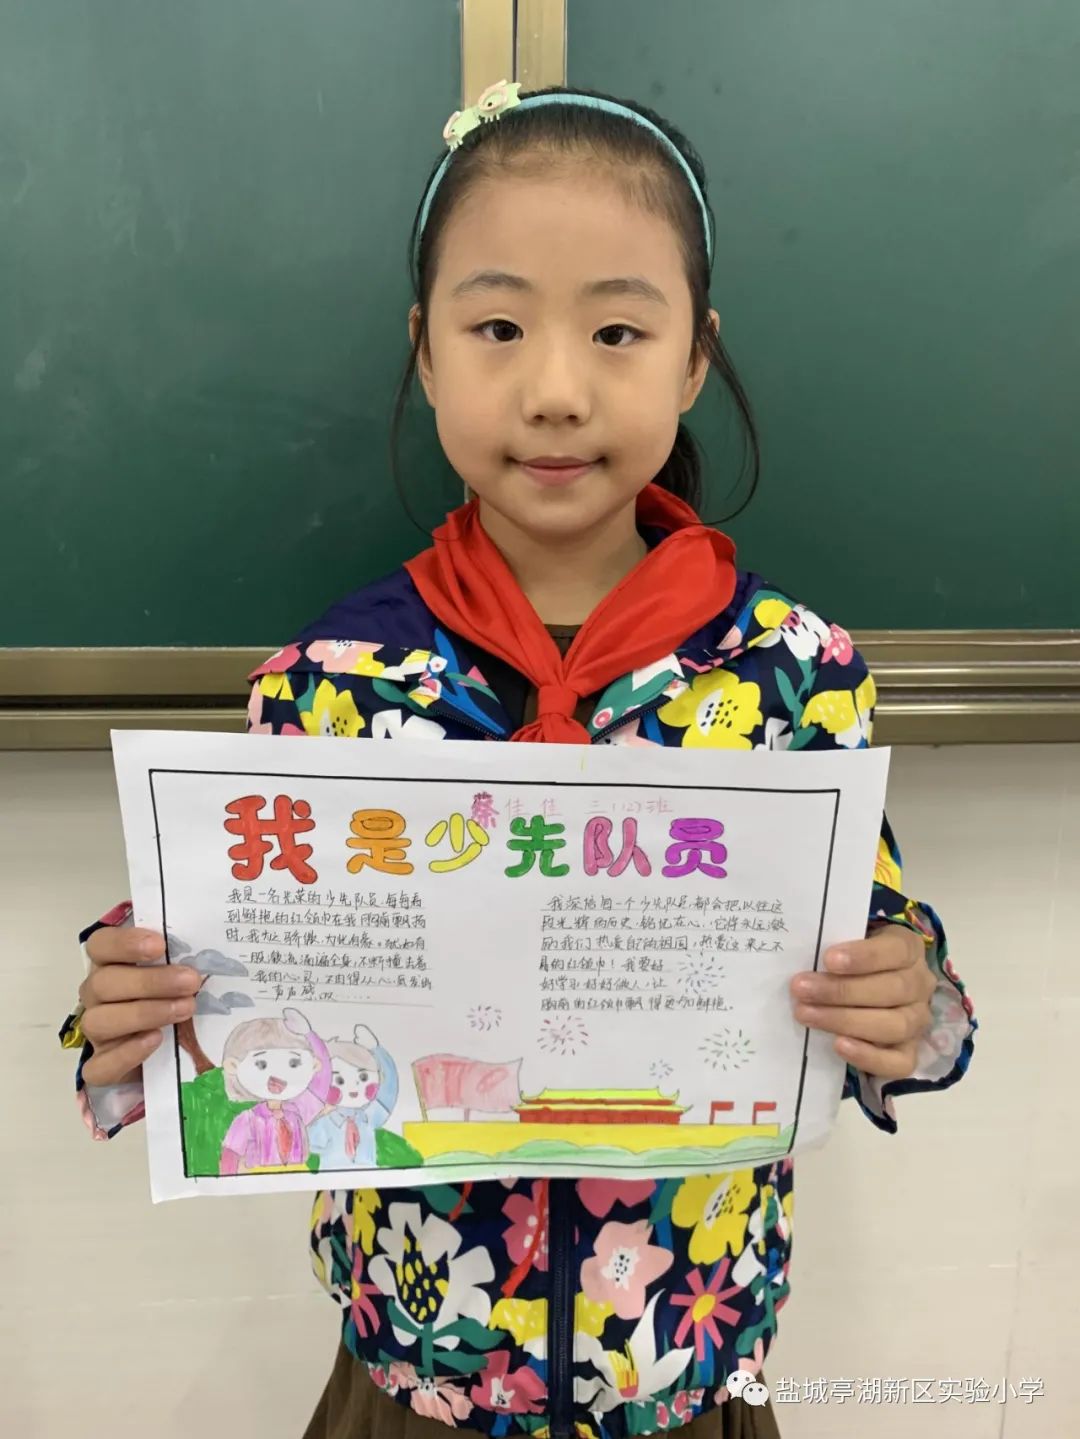 蔡佳佳 三(12)班
我是少先队员
我是一名光荣的少先队员,每每看
到鲜艳的红领巾在我胸前飘扬
时,我为之骄傲,为此自豪。犹如有
一股激流涌遍全身,不断撞击着
我的心灵,不由得从心底发出
一声声感叹……
我深信每一个少先队员,都会把以往这
段光辉的历史,铭记在心,它将永远激
励我们热爱自己的祖国,热爱这来之不
易的红领巾!我要好
好学习好好做人,让
胸前的红领巾飘得更加鲜艳。
盐城亭湖新区实验小学